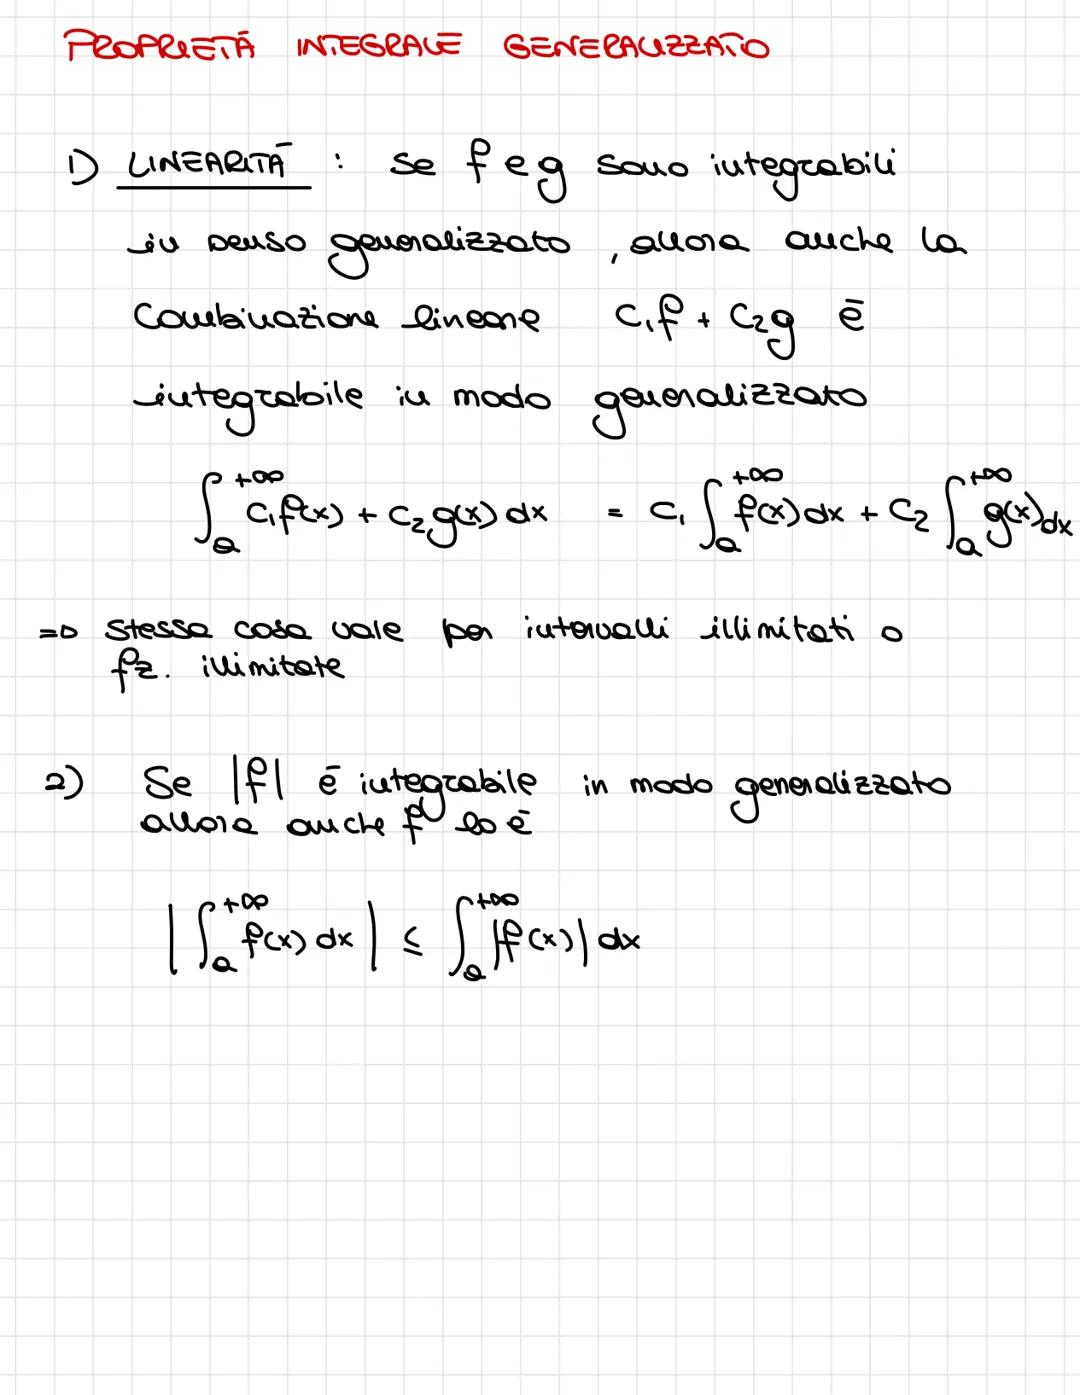 PROPRIETÀ INTEGRALE GENERALIZZATO
1) LINEARITÀ : se f e g sono integrabili
in senso generalizzato, allora anche la
combinazione lineare c₁f + c₂g è
integrabile in modo generalizzato
∫ₐ^{+∞} c₁f(x) + c₂g(x) dx = c₁ ∫ₐ^{+∞} f(x) dx + c₂ ∫ₐ^{+∞} g(x) dx
=> stessa cosa vale per intervalli illimitati o
fz. illimitate
2) Se |f| è integrabile in modo generalizzato
allora anche f lo è
|∫ₐ^{+∞} f(x) dx| ≤ ∫ₐ^{+∞} |f(x)| dx